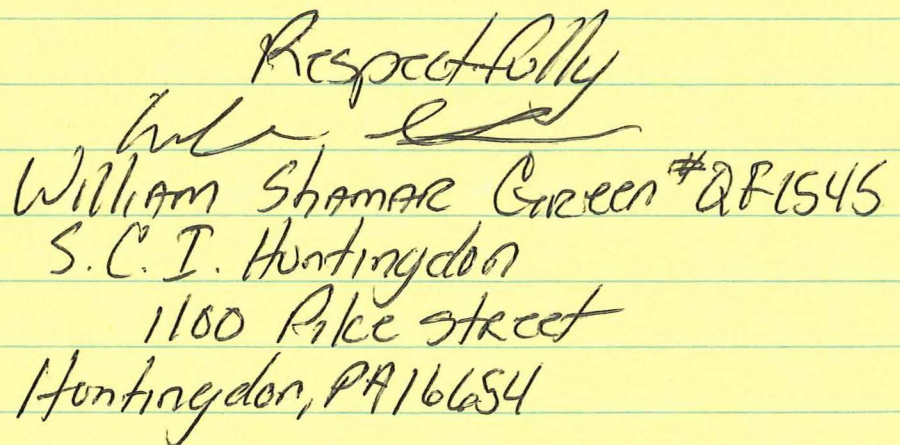 Respectfully
William Shamar Green #QF1545
S.C.I. Huntingdon
1100 Pike street
Huntingdon, PA 16654